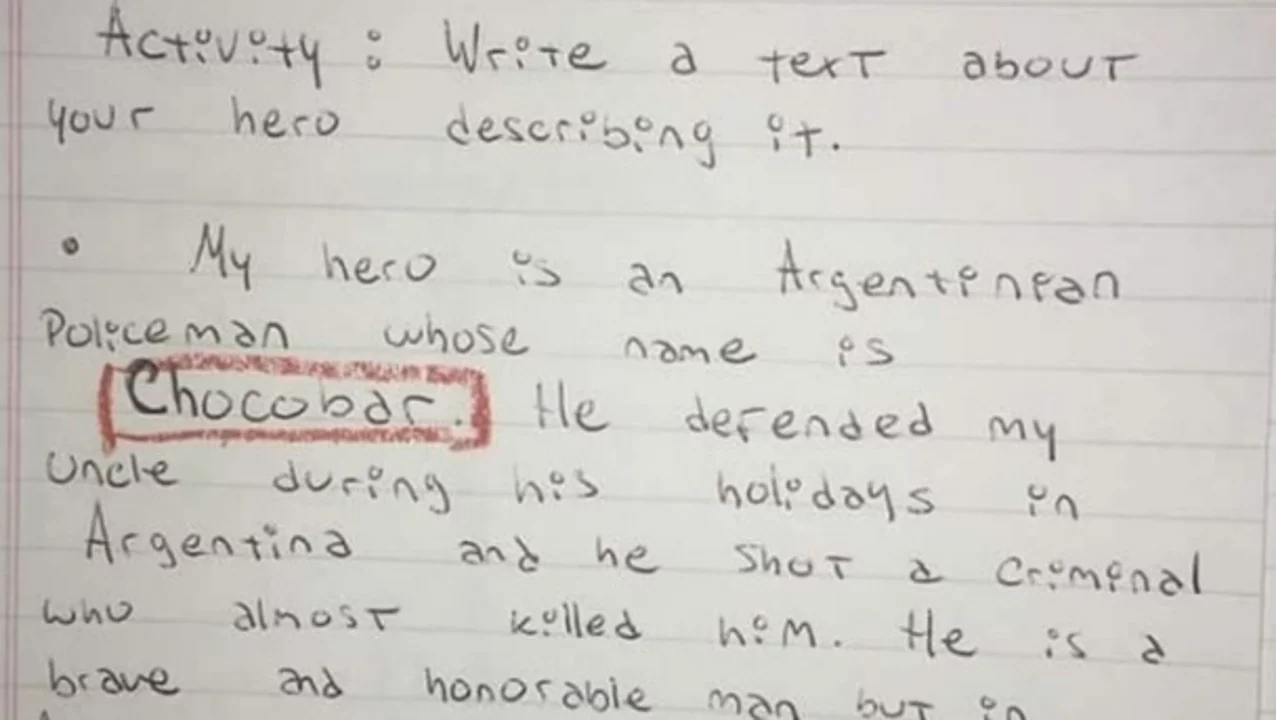 Activity: Write a text about
your hero describing it.
• My hero is an Argentinian
Policeman whose name is
Chocobar. He defended my
uncle during his holidays in
Argentina and he shot a criminal
who almost killed him. He is a
brave and honorable man but in